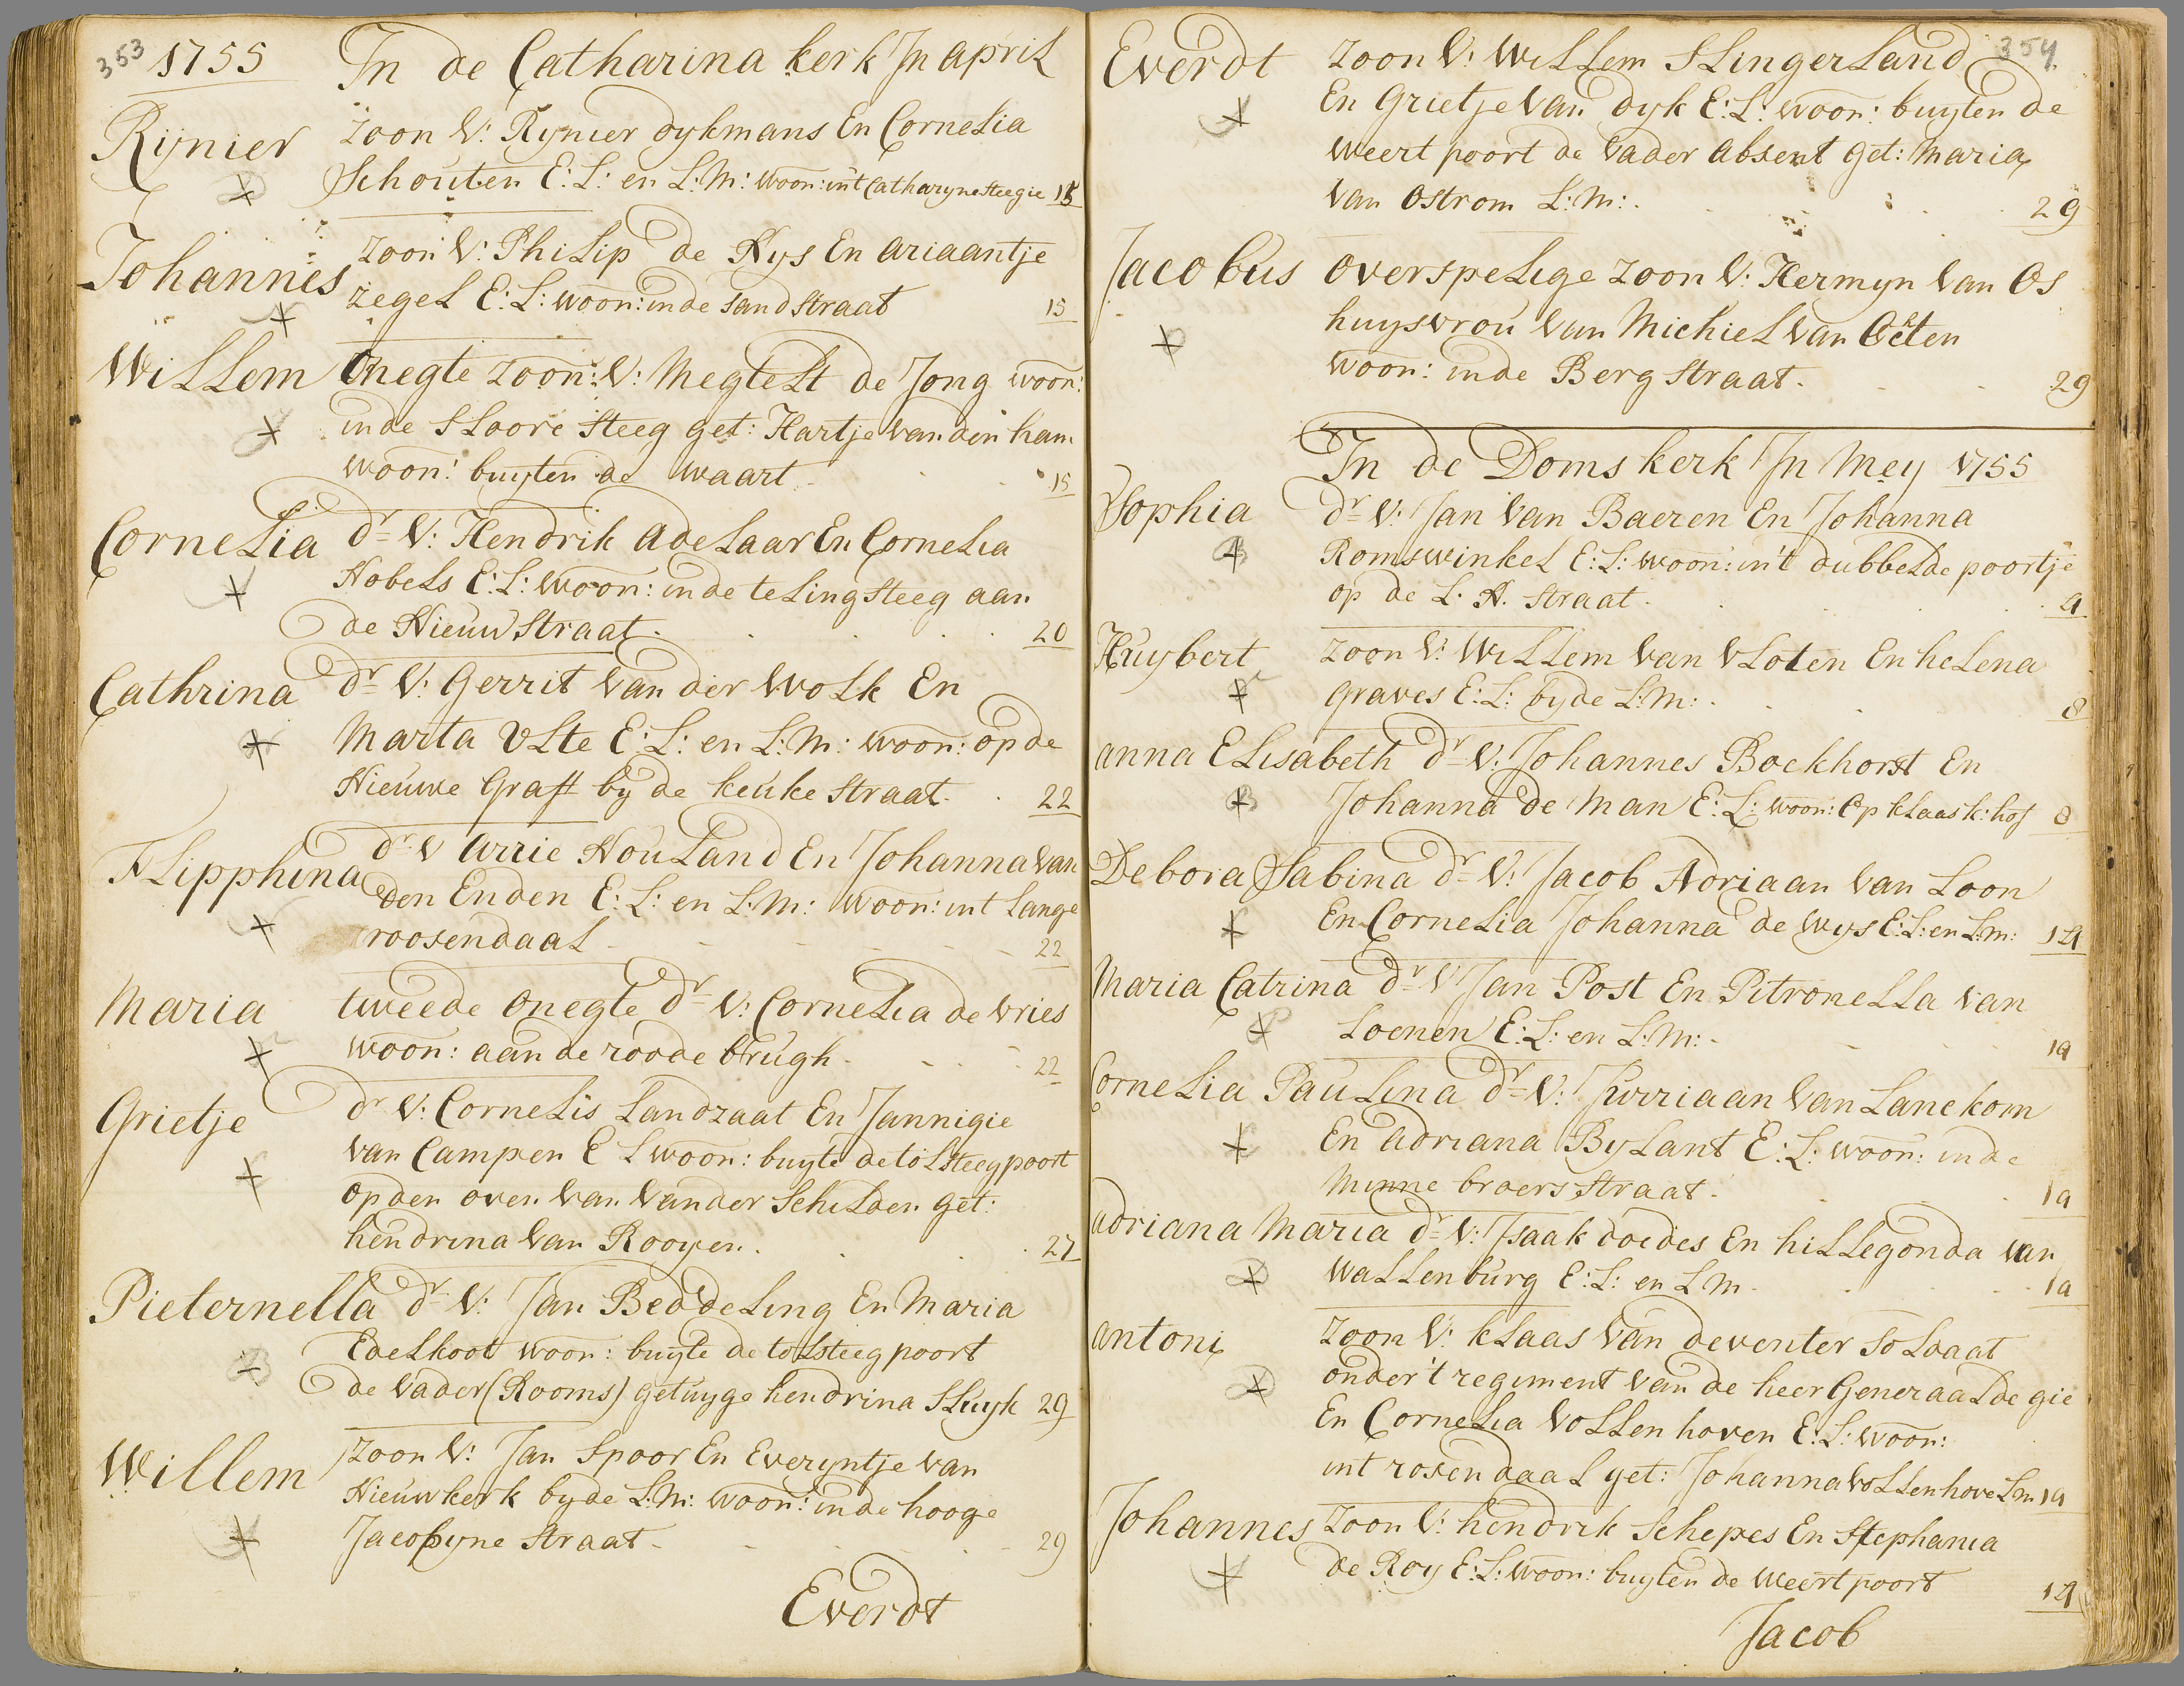 353 1755 In de Catharina kerk In april
Rijnier zoon V: Rynier dykmans En Cornelia
Schouten E: L: en L: M: woon: int Catharynesteegie 15
Johannes zoon V: Philip de Nys En ariaantje
zegel E: L: woon: inde sandstraat 15
Willem Onegte zoon: V: Megtelt de Jong woon:
inde Sloore steeg get: Hartje van den ham
woon: buyten de waart 15
Cornelia dr V: Hendrik adelaar En Cornelia
Nobels E: L: woon: inde teling steeg aan
de Nieuwstraat. 20
Cathrina dr V: Gerrit van der Wolk En
Marta Ulte E: L: en L: M: woon: op de
Nieuwe Graft by de keuke straat. 22
Flipphina dr V Arrie Nouland En Johanna van
den Enden E: L: en L: M: woon: int Lange
roosendaal 22
Maria tweede onegte dr V: Cornelia de Vries
woon: aan de roode brugh. 22
Grietje dr V: Cornelis Landzaat En Jannigie
van Campen E L woon: buyte de tolsteegpoort
op den oven van vander Schilden get:
hendrina van Rooyen. 27
Pieternella dr V: Jan Beddeling En Maria
Edelkoot woon: buyte de tolsteegpoort
de Vader (Rooms) getuyge hendrina Sluyk 29
Willem zoon V: Jan Spoor En Everyntje van
Nieuwkerk by de L: M: woon: inde hooge
Jacobyne straat. 29
Everdt
354
Everdt zoon V: Willem Slingerland
En Grietje van dyk E: L: woon: buyten de
weert poort de Vader absent get: Maria
van Ostrom L: M: . 29
Jacobus overspelige zoon V: Hermyn van Os
huysvrou van Michiel van
woon: inde Berg straat. 29
In de Domskerk In Mey 1755
Sophia dr V: Jan van Baeren En Johanna
Romswinkel E: L: woon: in't dubbelde poortje
op de L. N. straat. 4
Huybert zoon V: Willem van Vloten En helena
graves E: L: by de L: M: . 8
anna Elisabeth dr V: Johannes Bockhorst En
Johanna de Man E: L: woon: Op klaas k: hof 8
Debora Sabina dr V: Jacob Adriaan van Loon
En Cornelia Johanna de Wys E: L: en L: m: 14
Maria Catrina dr V Jan Post En Pitronella van
Loenen E: L: en L: M: . 14
Cornelia Paulina dr V: Jurriaan van Lanekom
En adriana Bylant E: L: woon: inde
Minne broers straat. 14
adriana Maria dr V: Isaak doedes En hillegonda van
Wallenburg E: L: en L M. 14
antoni zoon V: klaas van deventer soldaat
onder 't regiment van de heer Generaal de gie
En Cornelia Vollenhoven E: L: woon:
int rosendaal get: Johanna Vollenhove L m 14
Johannes zoon V: hendrik Schepes En Stephania
de Roy E: L: woon: buyten de Weert poort 14
Jacob